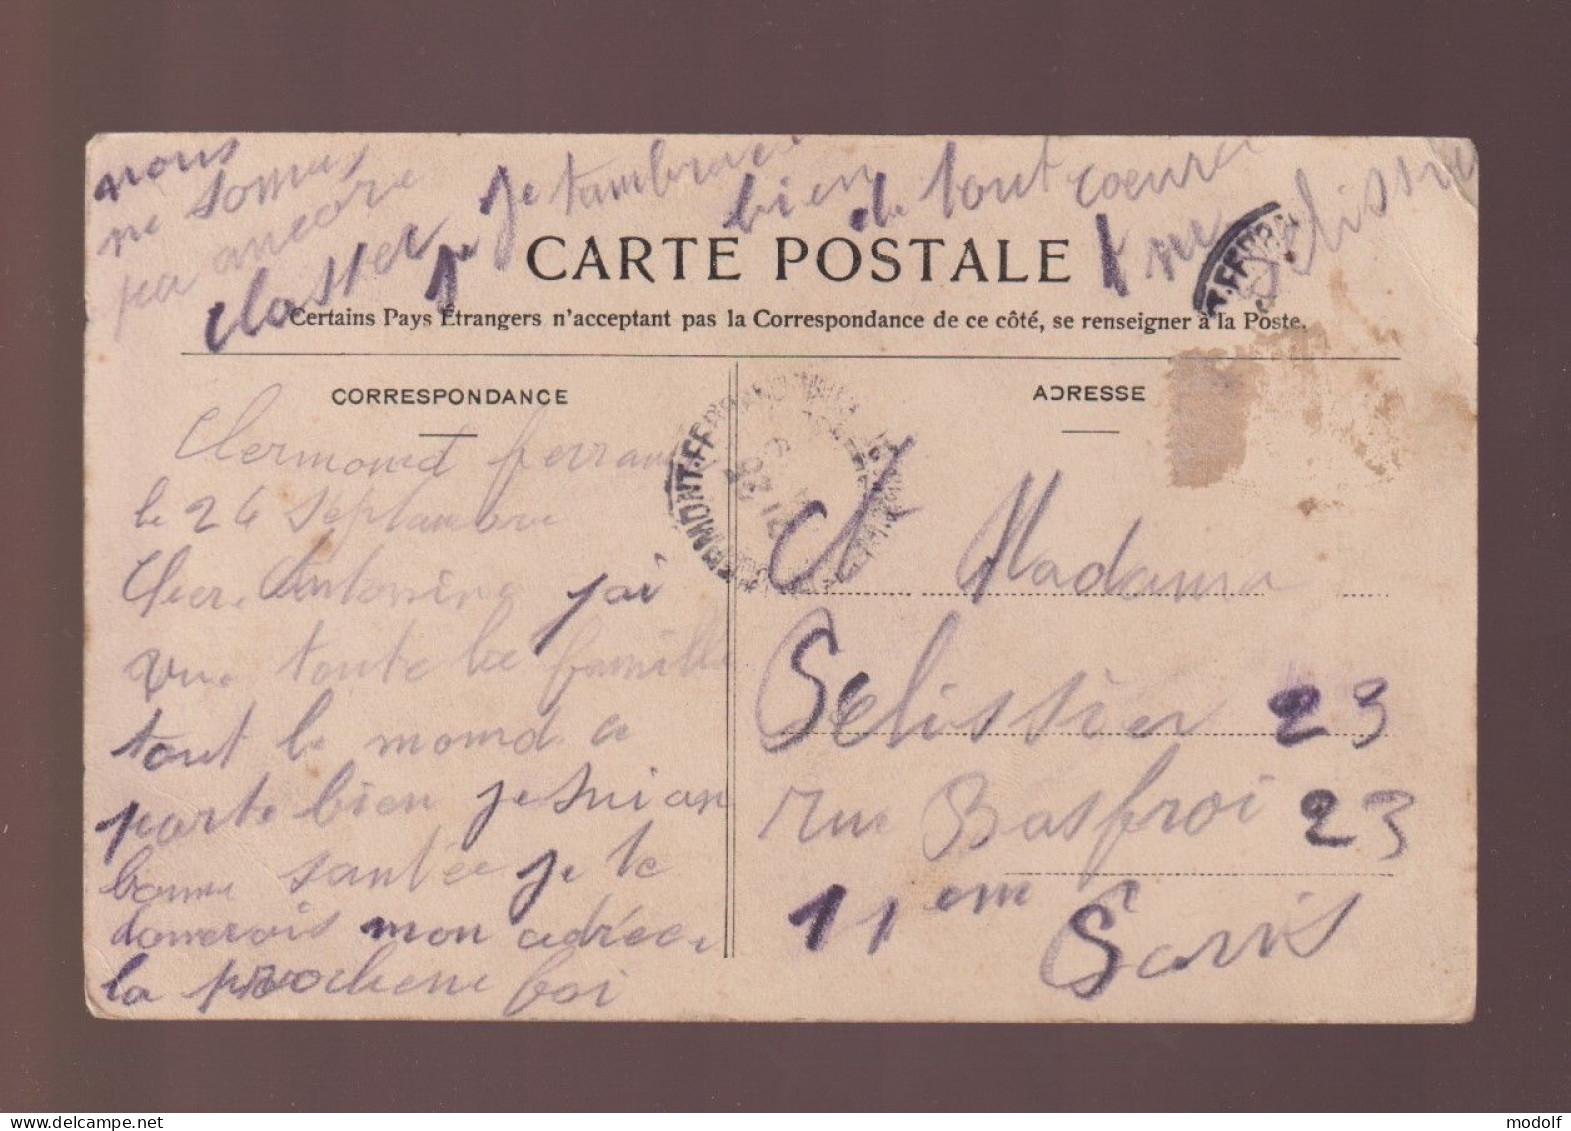 nous
ne somes
pa ancore
classer je
je tambrase
bien de tout coeur
CARTE POSTALE
Certains Pays Étrangers n'acceptent pas la Correspondance de ce côté, se renseigner à la Poste.
CORRESPONDANCE
Clermond ferrand
le 24 Septambre
Cher Antonine jai
vue toute la famille
tout le mond a
parte bien je sui an
bonne santée je te
donerois mon adrece
la prochene foi
ADRESSE
A Madama
Selissier 23
rue Basfroi 23
11 em Paris
delcampe.net
modolf